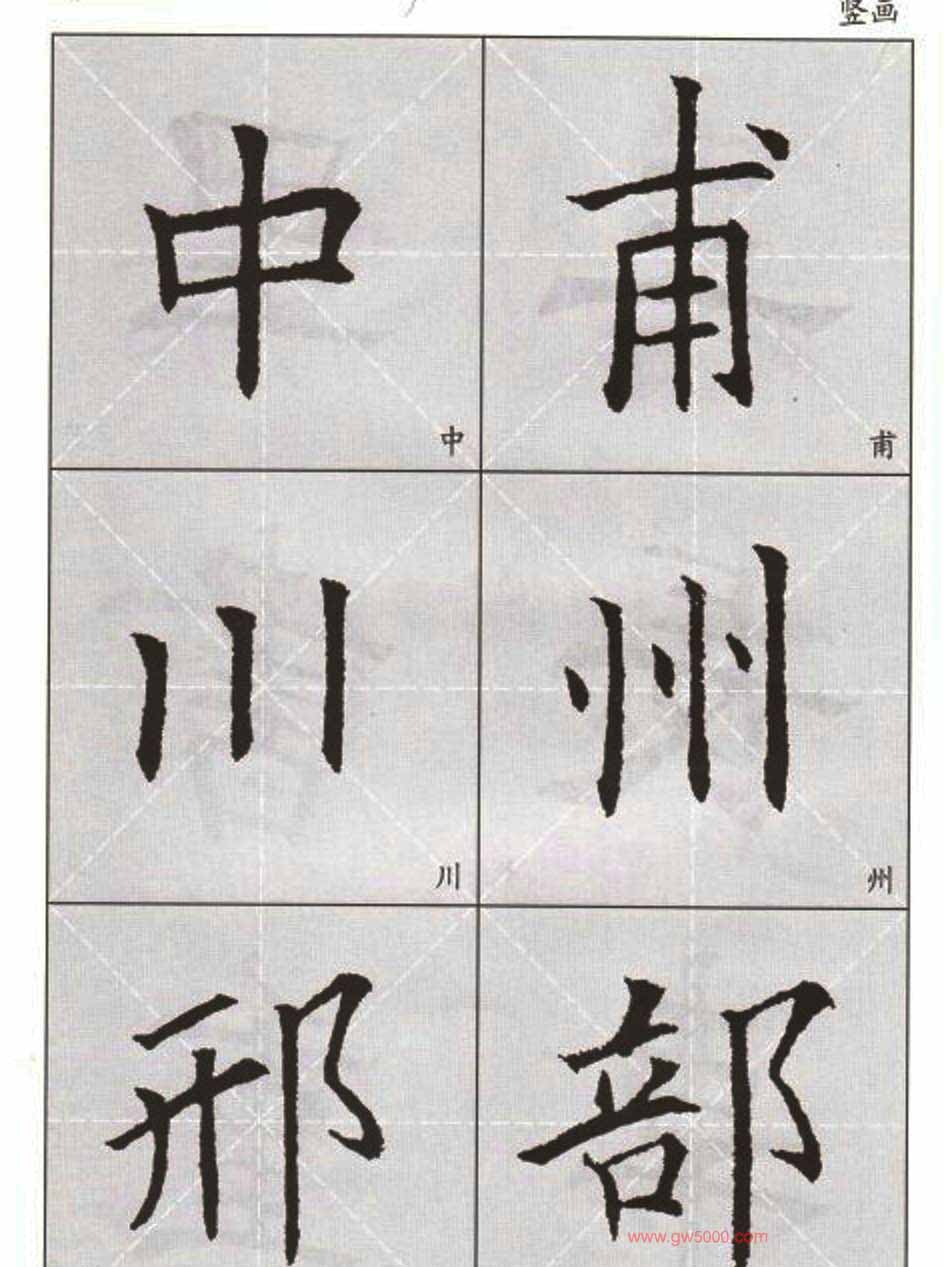 竖画
中 甫
中 甫
川 州
川 州
邢 部
www.gw5000.com